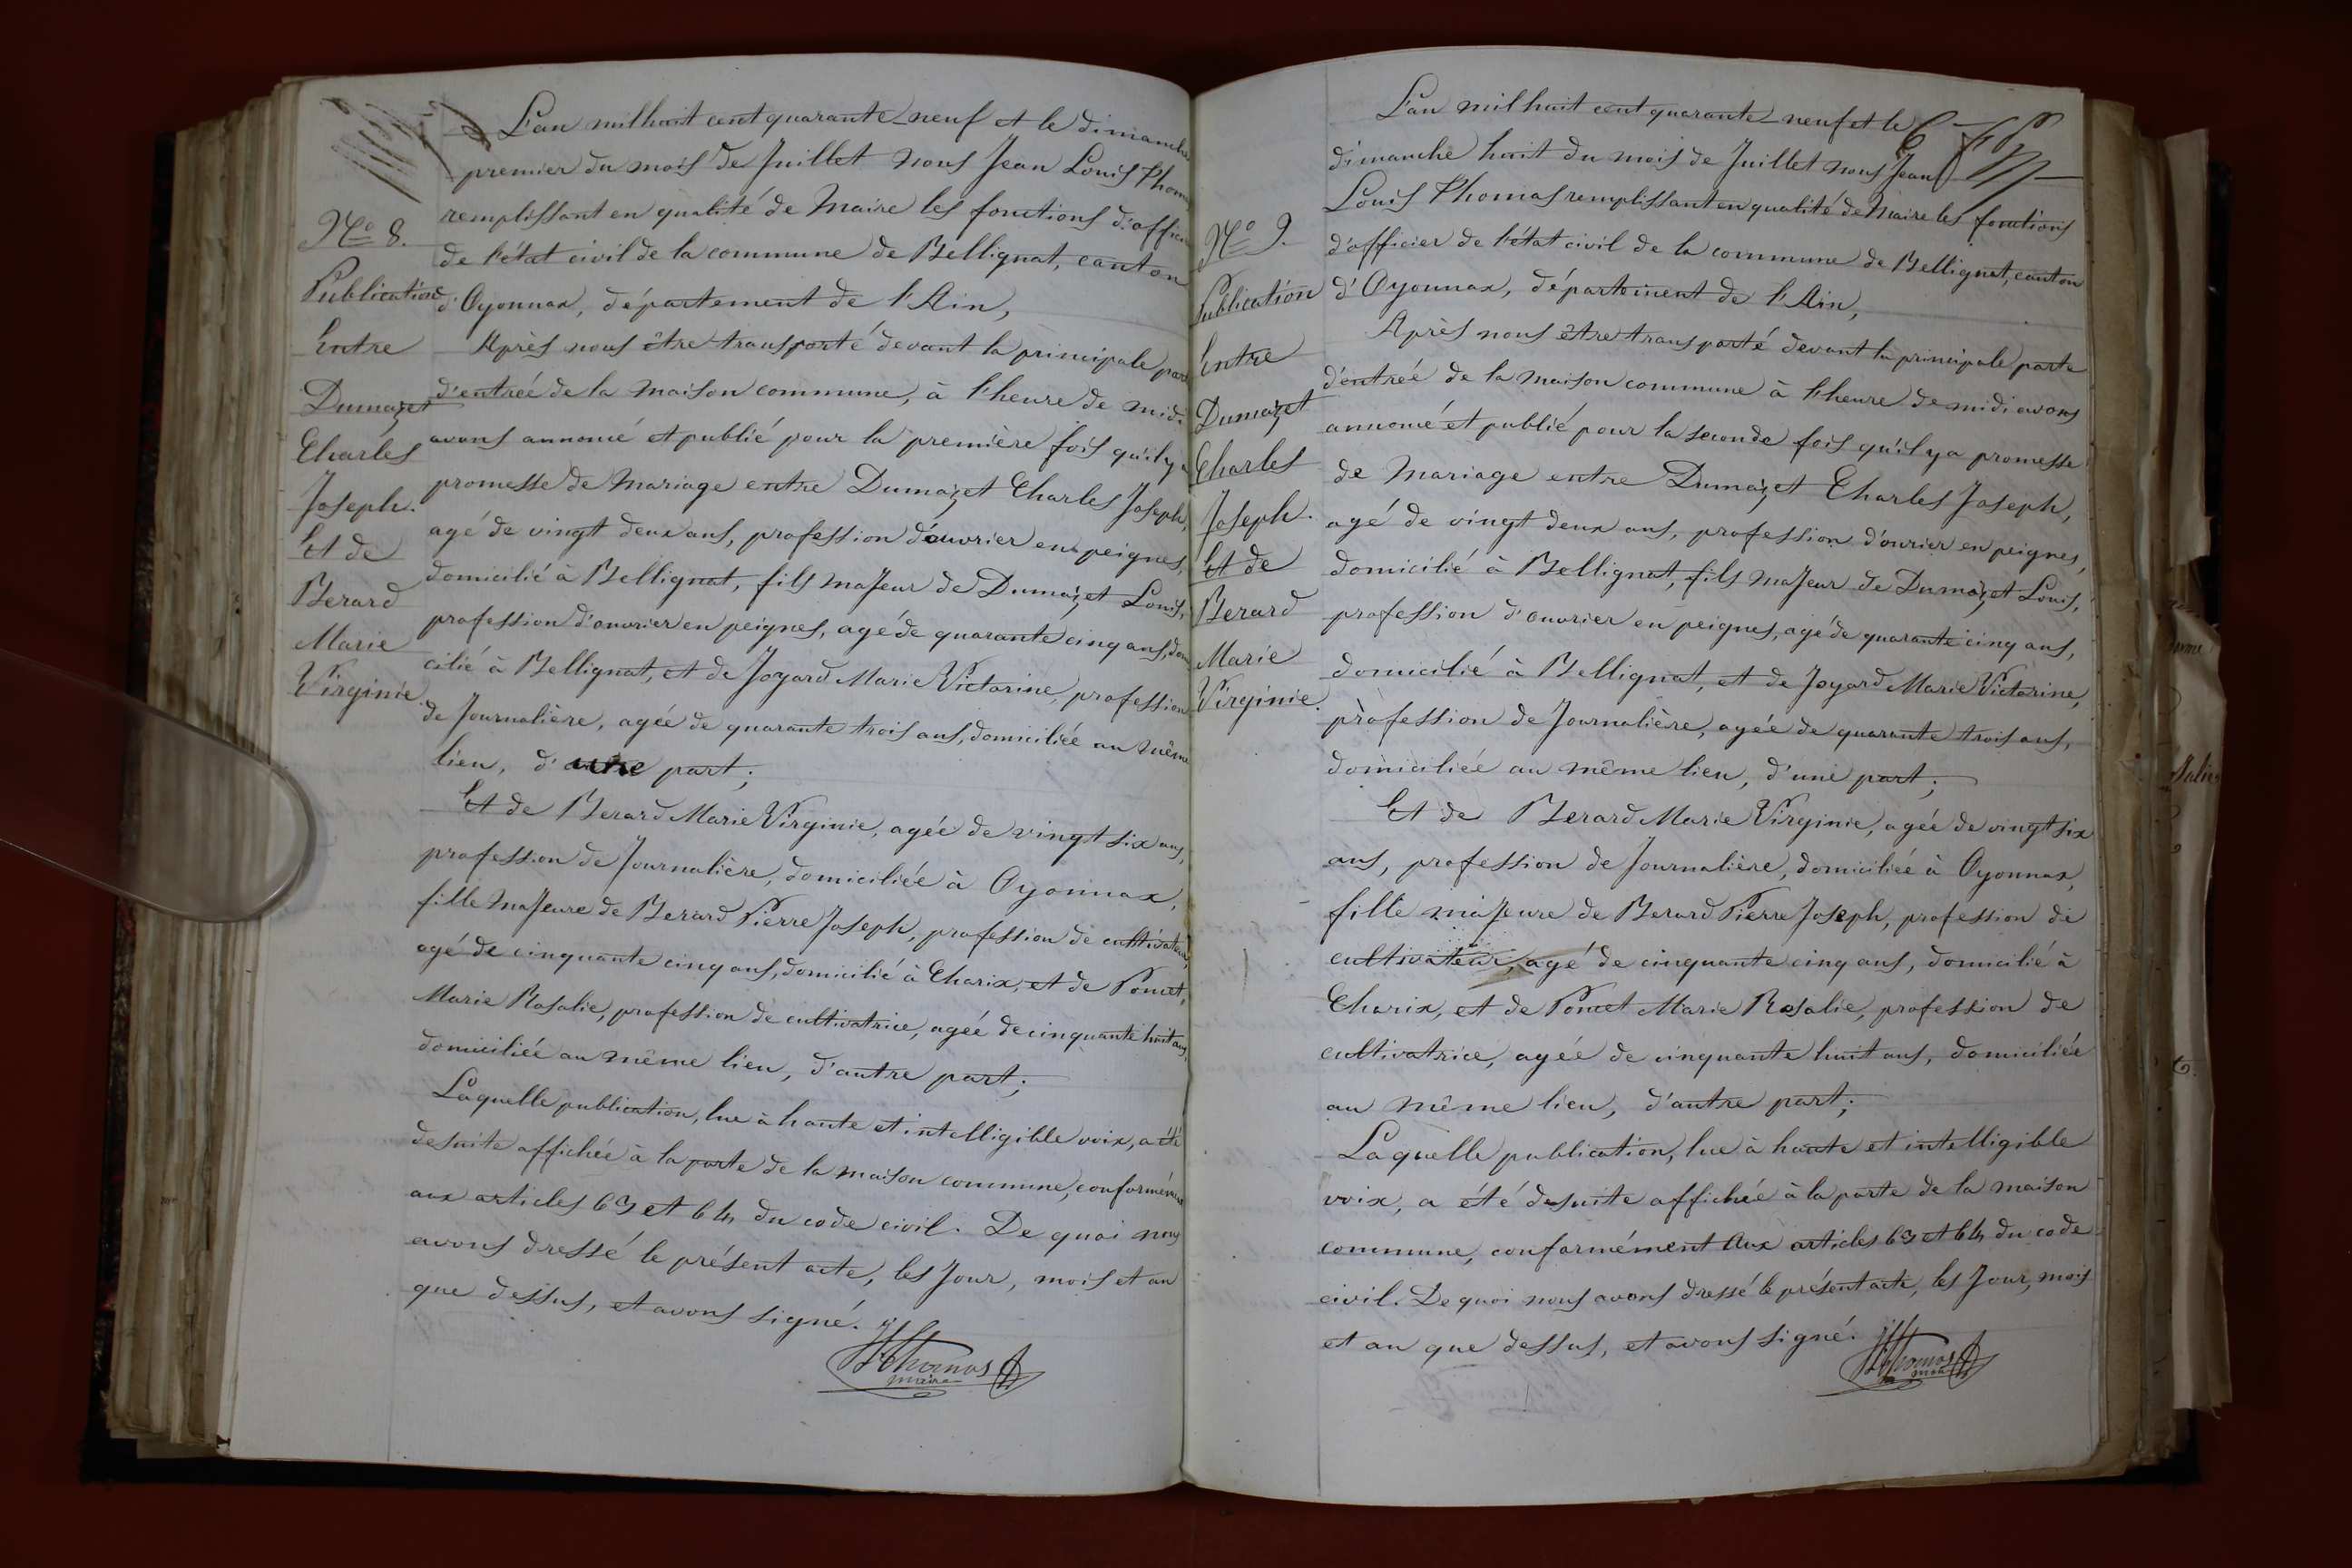 Nº 8.
Publication
Entre
Dumazet
Charles
Joseph.
Et de
Berard
Marie
Virginie.
L'an mil huit cent quarante-neuf et le dimanche
premier du mois de Juillet nous Jean Louis Thomas
remplissant en qualité de Maire les fonctions d'officier
de l'état civil de la commune de Bellignat, canton
d'Oyonnax, département de l'Ain,
Après nous être transporté devant la principale porte
d'entrée de la maison commune, à l'heure de midi
avons annoncé et publié pour la première fois qu'il y a
promesse de Mariage entre Dumazet Charles Joseph,
agé de vingt deux ans, profession d'ouvrier en peignes,
domicilié à Bellignat, fils majeur de Dumazet Louis,
profession d'ouvrier en peignes, agé de quarante cinq ans, domi
cilié à Bellignat, et de Joyard Marie Victorine, profession
de Journalière, agée de quarante trois ans, domiciliée au même
lieu, d'une part;
Et de Berard Marie Virginie, agée de vingt six ans,
profession de Journalière, domiciliée à Oyonnax,
fille majeure de Berard Pierre Joseph, profession de cultivateur,
agé de cinquante cinq ans, domicilié à Charix, et de Poncet,
Marie Rosalie, profession de cultivatrice, agée de cinquante huit ans,
domiciliée au même lieu, d'autre part;
Laquelle publication, lue à haute et intelligible voix, a été
desuite affichée à la porte de la maison commune, conformément
aux articles 63 et 64 du code civil. De quoi nous
avons dressé le présent acte, les Jour, mois et an
que dessus, et avons signé.
JLThomas
maire
Nº 9.
Publication
Entre
Dumazet
Charles
Joseph.
Et de
Berard
Marie
Virginie.
L'an mil huit cent quarante-neuf et le
dimanche huit du mois de Juillet nous Jean
Louis Thomas remplissant en qualité de Maire les fonctions
d'officier de l'état civil de la commune de Bellignat, canton
d'Oyonnax, département de l'Ain,
Après nous être transporté devant la principale porte
d'entreé de la maison commune à l'heure de midi avons
annoncé et publié pour la seconde fois qu'il y a promesse
de Mariage entre Dumazet Charles Joseph,
agé de vingt deux ans, profession d'ouvrier en peignes,
domicilié à Bellignat, fils majeur de Dumazet Louis,
profession d'ouvrier en peignes, agé de quarante cinq ans,
domicilié à Bellignat, et de Joyard Marie Victorine,
profession de Journalière, agée de quarante trois ans,
domiciliée au même lieu, d'une part;
Et de Berard Marie Virginie, agée de vingt six
ans, profession de Journalière, domiciliée à Oyonnax,
fille majeure de Berard Pierre Joseph, profession de
cultivateur, agé de cinquante cinq ans, domicilié à
Charix, et de Poncet Marie Rosalie, profession de
cultivatrice, agée de cinquante huit ans, domiciliée
au même lieu, d'autre part;
Laquelle publication, lue à haute et intelligible
voix, a été desuite affichée à la porte de la maison
commune, conformément aux articles 63 et 64 du code
civil. De quoi nous avons dressé le présent acte, les Jour, mois
et an que dessus, et avons signé.
JLThomas
maire